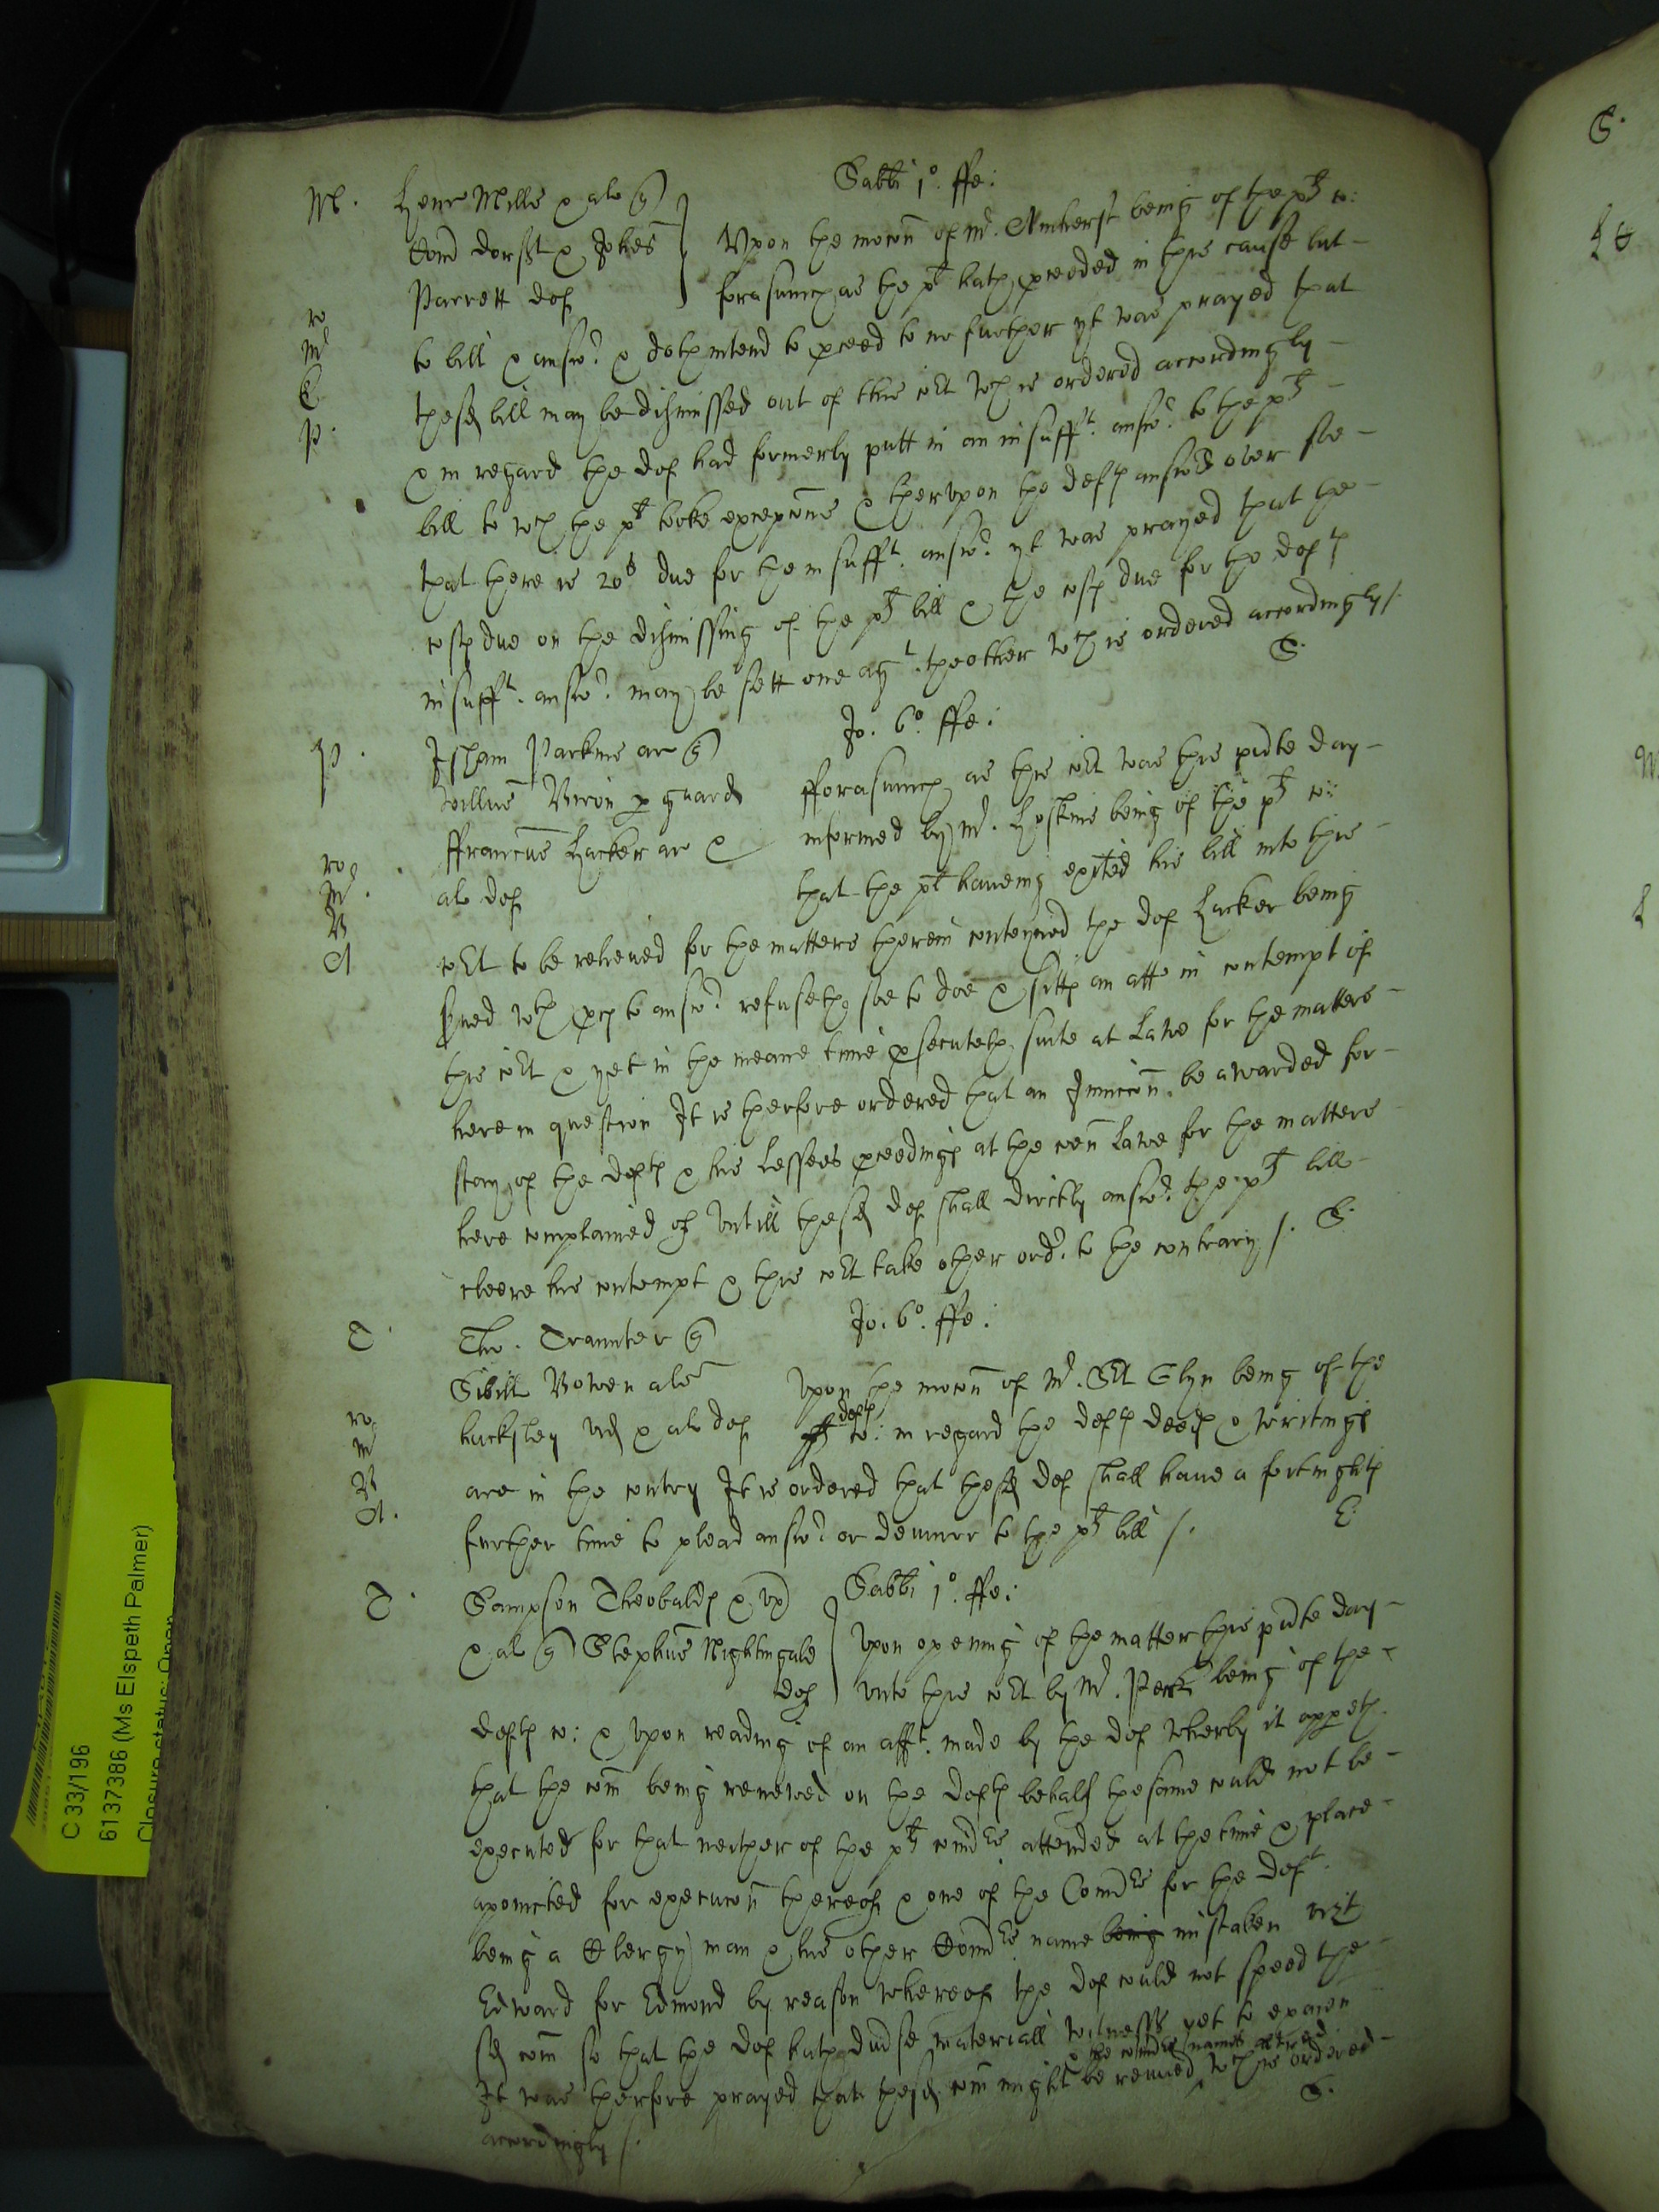 Sabbi 1o. ffe:
M. Henr Mills & al q
Com dorsst & Johes
Parrett def
Upon the mocon of mr. Amherst being of the plt co:
forasmuch as the plt hath pceeded in this cause but
to bill & answr. & doth intend to pceed to no further yt was prayed that
the sd bill may be dismissed out of this cort wch is ordered accordingly
& in regard the def had formerly putt in an insufft. answr. to the plts
bill to wch the plt tooke excepcons & therupon the defts answrd over soe
that there is 20s due for the insufft. answr. yt was prayed that the
costs due on the dismissing of the plts bill & the costs due for the defts
insufft. answr. may be sett one agt. the other wch is ordered accordingly /.
S.
Jo. 6o. ffe:
P. Isham Parkins ar q
willms p guard
ffrancus Hacker ar &
als def
fforasmuch as this cort was this pnte day
informed by mr. Hoskins being of the plts co:
that the plt haveing exited his bill into this
cort to be releived for the matters therein conteyned the def Hacker being
served wth pces to answr. refuseth soe to doe & sitts an atts in contempt of
this cort & yet in the meane time psecuteth suite at Lawe for the matters
here in question It is therfore ordered that an Iniuccon be awarded for
stay of the defts & his Lessees pceedings at the comn Lawe for the matters
here complained of untill the sd def shall dirctly answr. the plts bill
cleere his contempt & this cort take other ordr. to the contrary /. S.
Jo. 6o. ffe:
T. Tho. Traunter q
Sibill Bowen als
hucksley vid & als def
Upon the mocon of mr. Srt Glyn being of the
defts co: in regard the defts deeds & writings
are in the contry It is ordered that the sd def shall have a fortnights
further time to plead answr. or demurr to the plts bill /.
E.
T. Sampson Theobalds & ux Sabbi 1o. ffe:
& al q Stephus Nightingale
def
Upon opening of the matter this pnte day
unto this cort by mr. being of the
defts co: & upon reading of an afft. made by the def wherby it appeth
that the com being renewed on the defts behalf the same could not be
executed for that neither of the plts comrs attended at the time & place
apointed for execucon thereof & one of the Comrs for the deft.
being a Clergy man & his other Comrs name being mistaken vizt
Edward for Edmond by reason whereof the def could not speed the
sd com so that the def hath diverse materiall witnesses yet to examn
It was therfore prayed that the sd com might be renued & the comrs names altred wch is ordered
accordingly /.
S.
C 33/196
6137386 (Ms Elspeth Palmer)
Closure status: Open